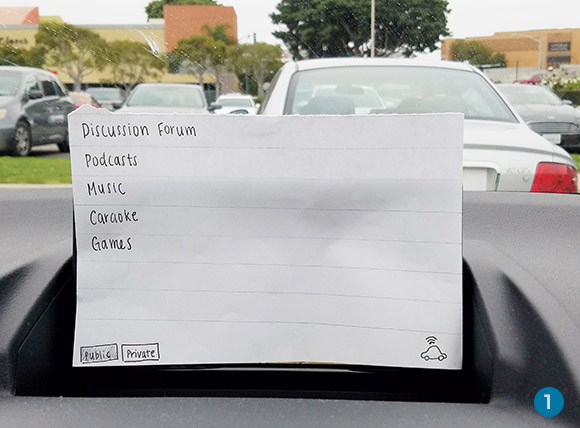 Discussion Forum
Podcasts
Music
Caraoke
Games
Public Private
1